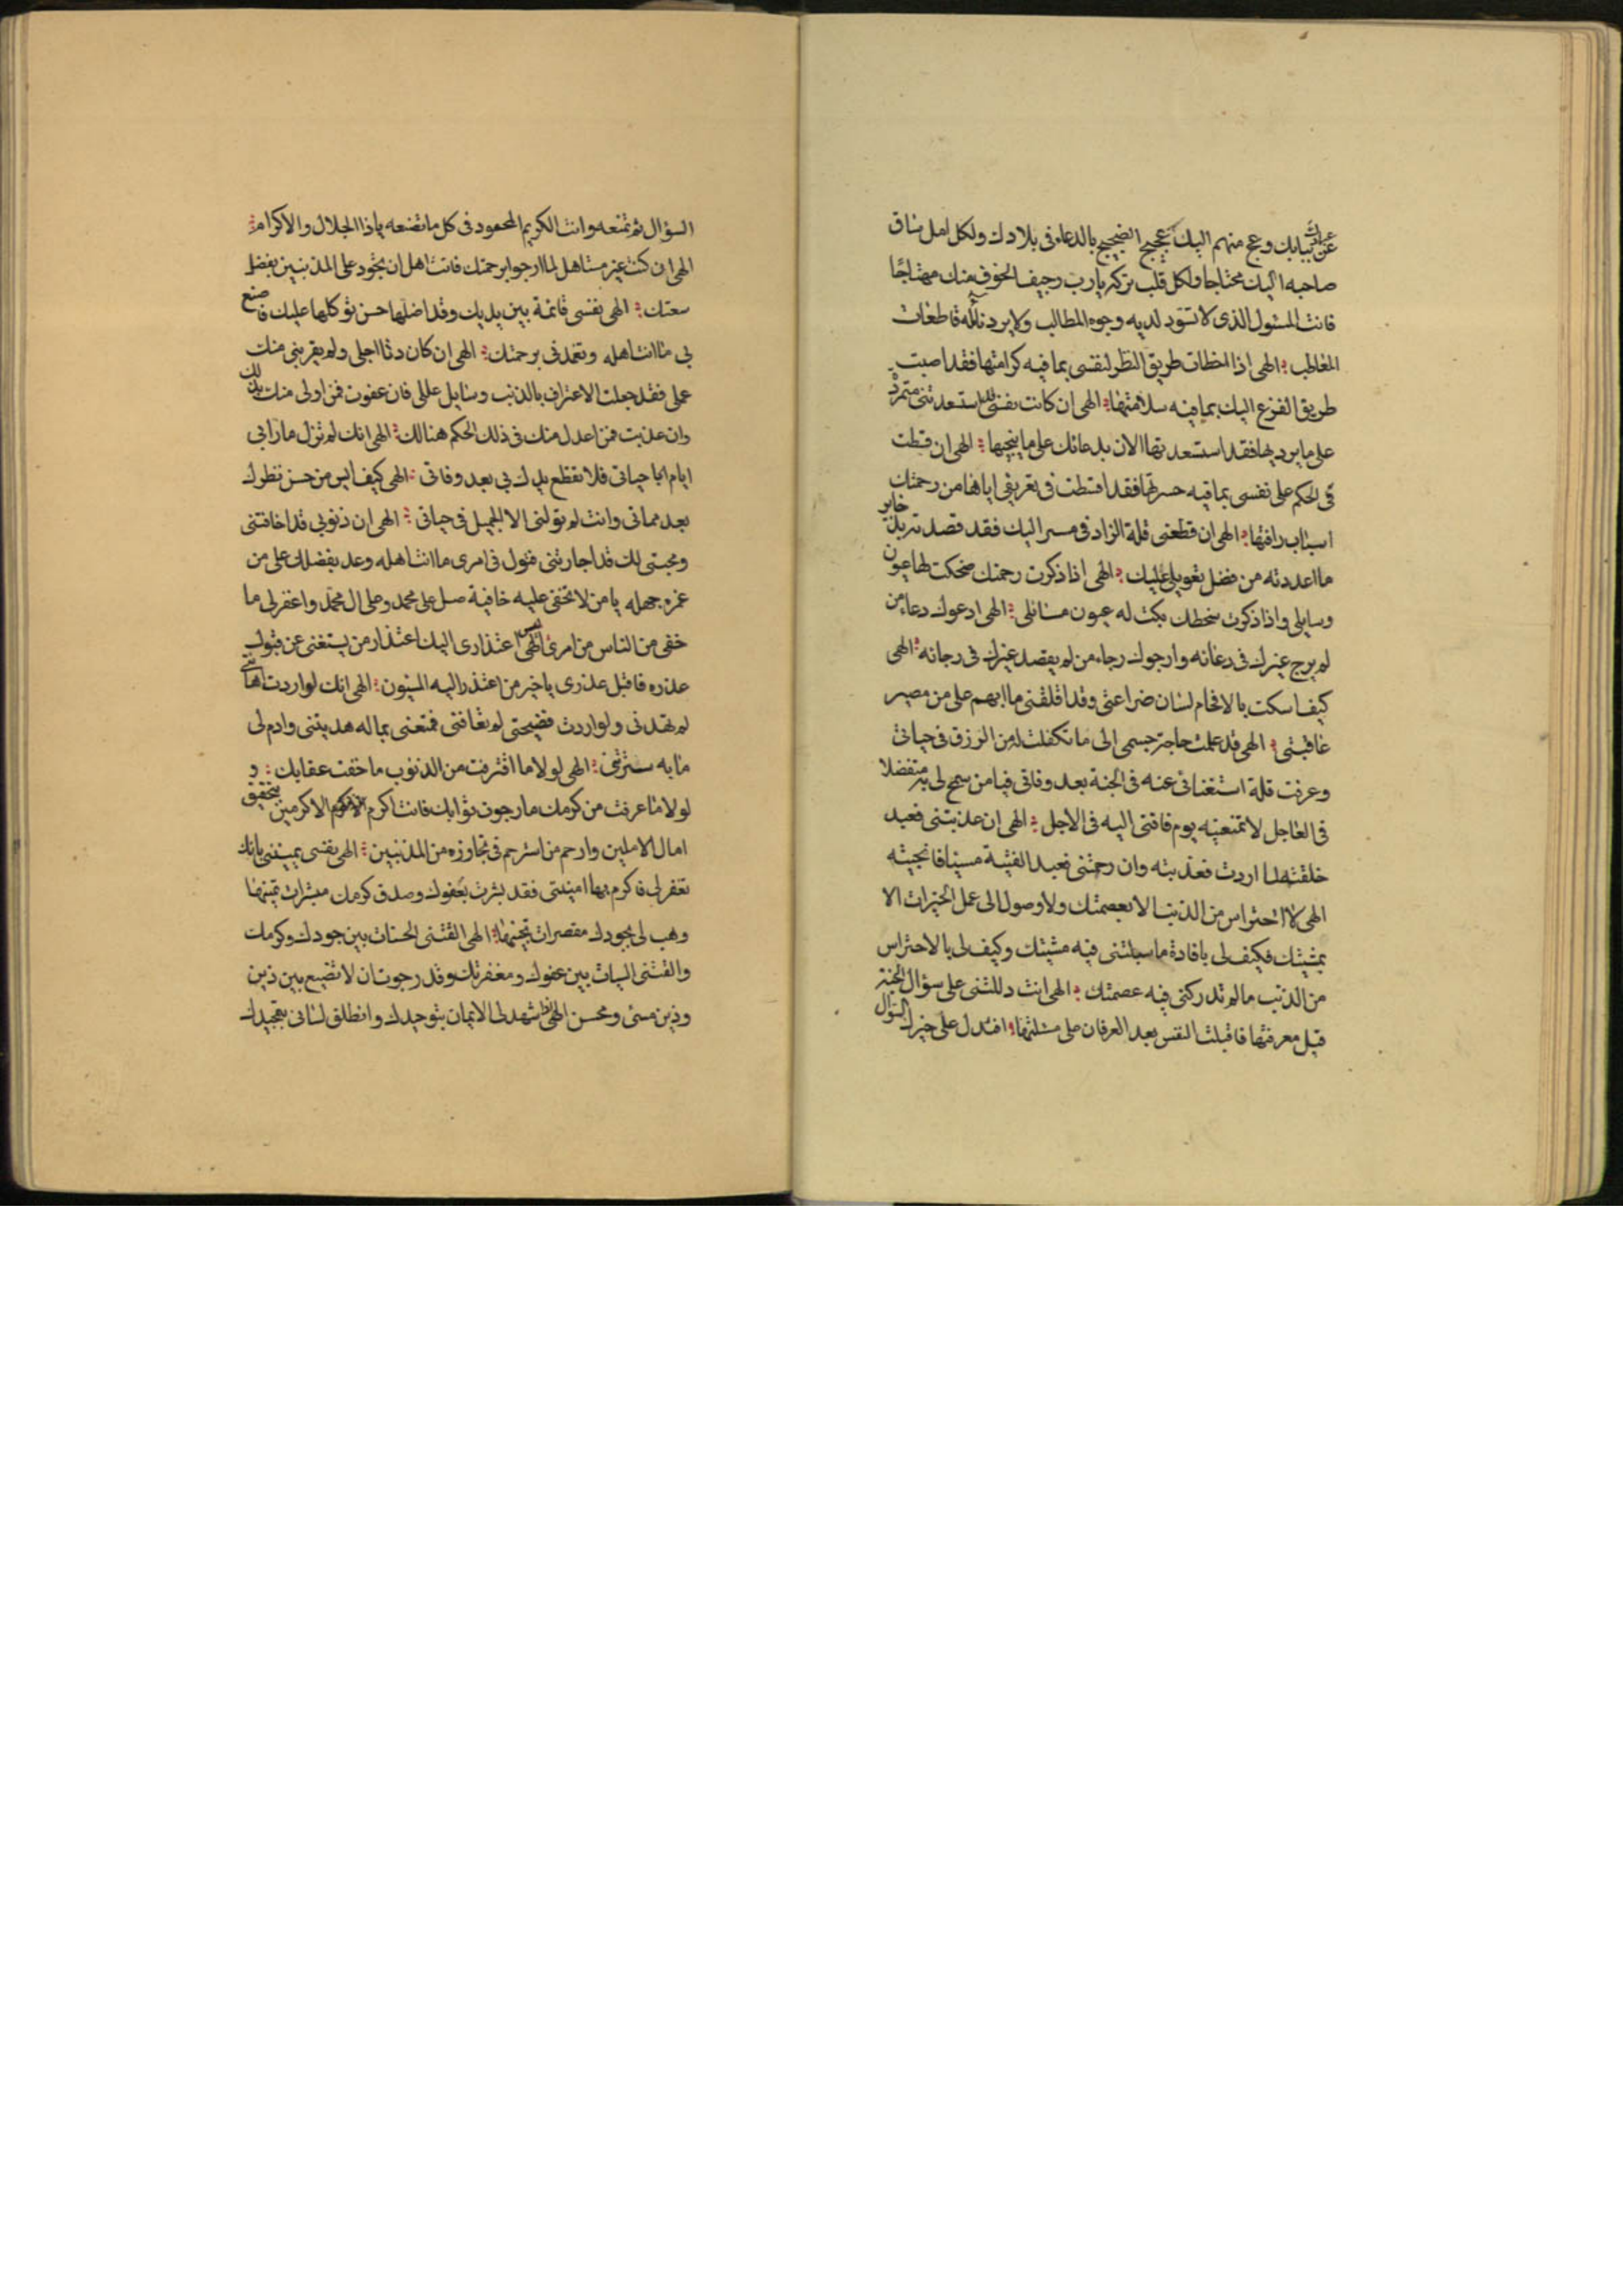 عبراتهم ببابك وعج منهم اليك عجيج الضجيج بالدعاء فى بلادك ولكل امل ساق
صاحبه اليك محتاجا ولكل قلب تركه يارب رجيف الخوف منك مهتاجًا
فانت المسئول الذى لا تسود لديه وجوه المطالب ولا يرد نائله قاطعات
المعاطب الهى اذا اخطات طريق النظر لنفسى بما فيه كرامتها فقد اصبت
طريق الفزع اليك بما فيه سلامتها الهى ان كانت نفسى استسعدتنى متمردة
على ما يرديها فقد استسعدتها الان بدعائك على ما ينجيها الهى ان قسطت
فى الحكم على نفسى بما فيه حسرتها فقد اقسطت فى تعريفى اياها من رحمتك
اسباب رافتها الهى ان قطعنى قلة الزاد فى مسير اليك فقد
ما اعددته من فضل تعويلى عليك الهى اذا ذكرت رحمتك ضحكت لها عيون
وسايلى واذا ذكرت سخطك بكت له عيون مسائلى الهى ادعوك دعاء من
لم يرج غيرك فى دعائه وارجوك رجاء من لم يقصد غيرك فى رجائه الهى
كيف اسكت بالافحام لسان ضراعتى وقد اقلقنى ما ابهم على من مصير
عاقبتى الهى قد علمت حاجة جسمى الى ما تكفلت له من الرزق فى حياتى
وعرفت قلة استغنائى عنه فى الجنة بعد وفاتى فيا من سمح لى به متفضلا
فى العاجل لا تمنعنيه يوم فاقتى اليه فى الاجل الهى ان عذبتنى فعبد
خلقته لما اردت فعذبته وان رحمتنى فعبد الفيته مسيئا فانجيته
الهى لا احتراس من الذنب الا بعصمتك ولا وصول الى عمل الخيرات الا
بمشيتك فكيف لى بافادة ما سبلتنى فيه مشيتك وكيف لى بالاحتراس
من الذنب ما لم تدركنى فيه عصمتك الهى انت دللتنى على سؤال الجنة
قبل معرفتها فاقبلت النفس بعد العرفان على مسئلتها افتدل على خيرك السؤال
السؤال ثم تمنعه وانت الكريم المحمود فى كل ما تصنعه ياذا الجلال والاكرام
الهى ان كنت غير مستاهل لما ارجو ابرحمتك فانت اهل ان تجود على المذنبين بفضل
سعتك الهى نفسى قائمة بين يديك وقد اظلها حسن توكلها عليك فاصنع
بى ما انت اهله وتغمدنى برحمتك الهى ان كان دنا اجلى ولم يقربنى منك
عملى فقد جعلت الاعتراف بالذنب وسايل عللى فان عفوت فمن اولى منك بذلك
وان عذبت فمن اعدل منك فى ذلك الحكم هنالك الهى انك لم تزل بارا بى
ايام حياتى فلا تقطع برك بى بعد وفاتى الهى كيف ايس من حسن نظرك
بعد مماتى وانت لم تولنى الا الجميل فى حياتى الهى ان ذنوبى قد اخافتنى
ومحبتى لك قد اجارتنى فتول فى امرى ما انت اهله وعد بفضلك على من
غمره جهله يا من لا تخفى عليه خافية صل على محمد وعلى ال محمد واغفر لى ما
خفى من الناس من امرى الهى ليس اعتذارى اليك اعتذار من يستغنى عن قبول
عذره فاقبل عذرى يا خير من اعتذر اليه المسيئون الهى انك لو اردت اهانتى
لم تهدنى ولو اردت فضيحتى لم تعافنى فمتعنى بما له هديتنى وادم لى
ما به سترتنى الهى لولا ما اقترفت من الذنوب ما خفت عقابك و
لولا ما عرفت من كرمك ما رجوت ثوابك فانت اكرم الاكرمين بتحقيق
امال الاملين وارحم من استرحم فى تجاوزه من المذنبين الهى نفسى يمنينى بانك
تغفر لى فاكرم بها امنيتى فقد بشرت بعفوك وصدق كرمك مبشرات تمنيها
وهب لى بجودك مقصرات تجنيها الهى القتنى الحسنات بين جودك وكرمك
والقتنى السيات بين عفوك ومغفرتك وقد رجوت ان لا تضيع بين ذين
وذين مسئ ومحسن الهى اذا شهد لى الايمان بتوحيدك وانطلق لسانى بتمجيدك